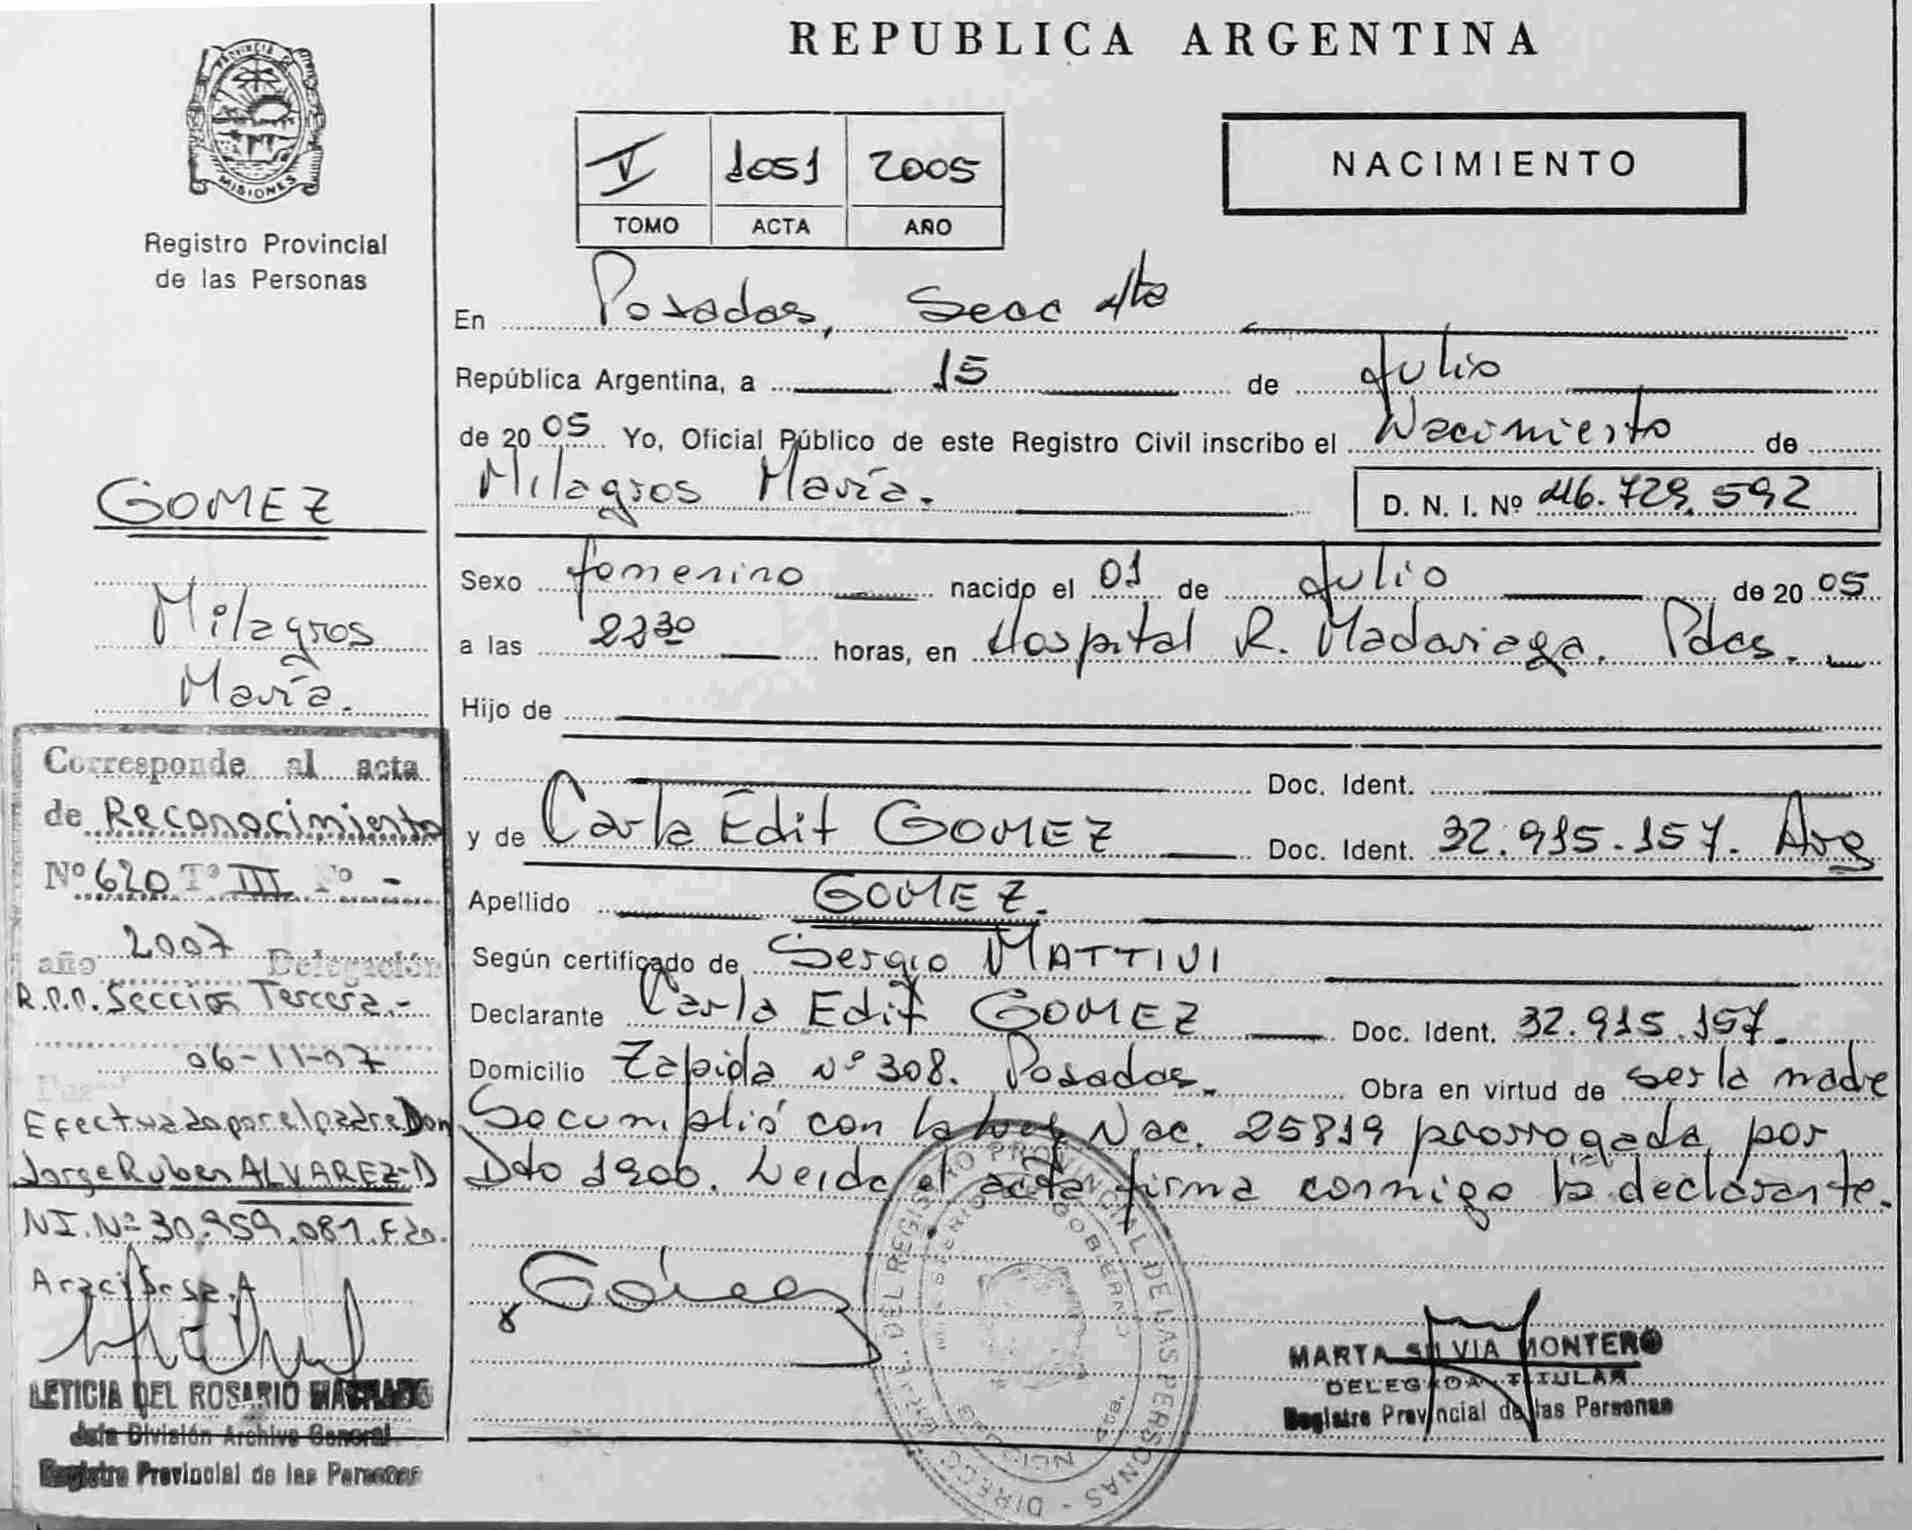 REPUBLICA ARGENTINA
PROVINCIA DE
MISIONES
Registro Provincial
de las Personas
V 1051 2005
TOMO ACTA AÑO
NACIMIENTO
En Posadas, Secc 4ta
República Argentina, a 15 de Julio
de 2005 Yo, Oficial Público de este Registro Civil inscribo el Nacimiento de
Milagros María. D. N. I. Nº 46.729.592
Sexo femenino nacido el 01 de Julio de 2005
a las 2230 horas, en Hospital R. Madariaga. Pdas.
Hijo de
Doc. Ident.
y de Carla Edit GOMEZ Doc. Ident. 32.915.157. Arg
Apellido GOMEZ.
Según certificado de Sergio MATTIVI
Declarante Carla Edit GOMEZ Doc. Ident. 32.915.157.
Domicilio Zapiola Nº 308. Posadas. Obra en virtud de ser la madre
Se cumplió con la Ley Nac. 25819 prorrogada por
Dto 1900. Leída el acta firma conmigo la declarante.
GOMEZ
Milagros
María.
Corresponde al acta
de Reconocimiento
Nº 620 Tº III Fº -
año 2007 Delegación
R.P.P. Sección Tercera.-
06-11-07
Efectuado por el padre Don
Jorge Ruben ALVAREZ-D
NI. Nº 30.959.081. Fdo.
LETICIA DEL ROSARIO MACHADO
Jefa División Archivo General
Registro Provincial de las Personas
Gómez
DEL REGISTRO PROVINCIAL DE LAS PERSONAS
MINISTERIO DE GOBIERNO
MARTA SILVIA MONTERO
DELEGADA TITULAR
Registro Provincial de las Personas